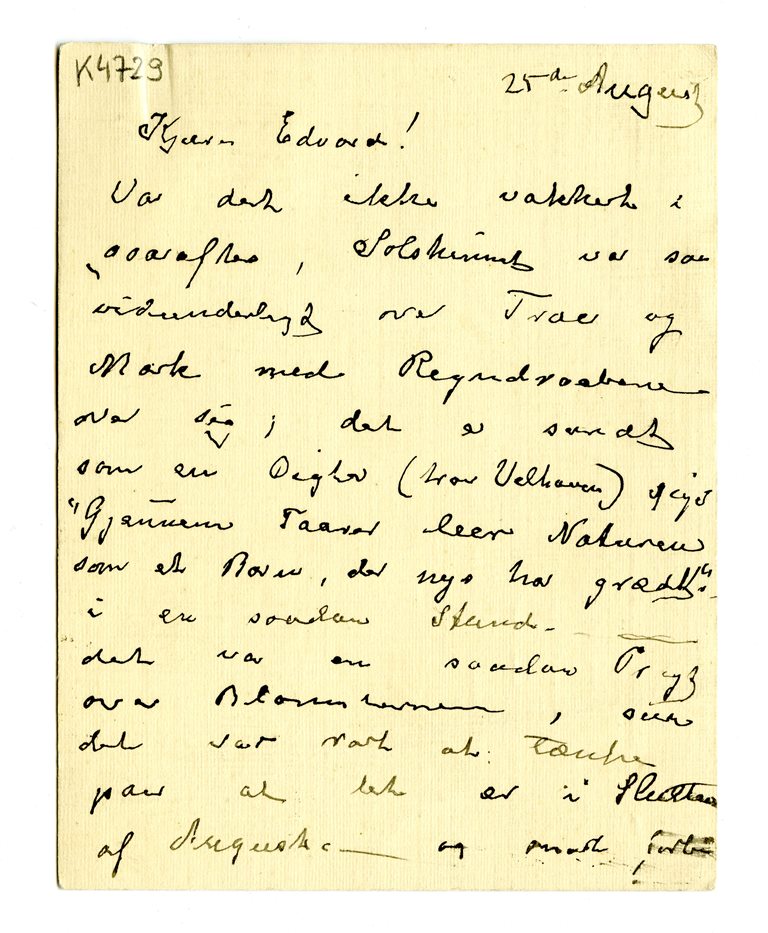 K4729
25de August
Kjære Edvard!
Var det ikke vakkert i
gaaraftes, Solskinnet var saa
vidunderligt over Træer og
Mark med Regndraabene
over sig; det er sandt
som en Digter (tror Velhaven) sige
"Gjennem Taarer leer Naturen
som et Barn, der nys har grædt"
i en saadan Stund.
det var en saadan Pragt
over Blomsterne,
det var rart at tænke
paa at det er i Slutten
af August. — og snart forbi